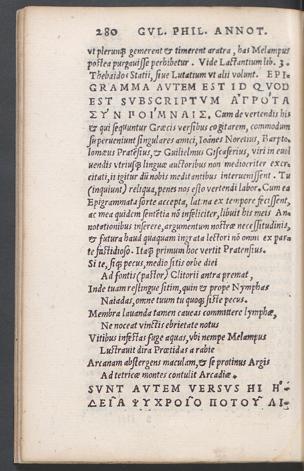 280 GVL. PHIL. ANNOT.
vt plerunq́; gemerent & timerent aratra, has Melampus
postea purgavisse perhibetur. Vide Lactantium lib. 3.
Thebaidos Statii, siue Lutatium vt alii volunt. EPI-
GRAMMA AVTEM EST ID QVOD
EST SVBSCRIPTVM ΑΓΡΟΤΑ
ΣΥΝ ΠΟΙΜΝΑΙΣ. Cum de vertendis his
& qui sequuntur Græcis versibus cogitarem, commodum
superueniunt singulares amici, Ioānes Noretius, Barpto-
lomæus Pratesius, & Gulielmus viri in euol
uendis vtriusq́; linguæ auctoribus non mediocriter exer-
citati, ii igitur dū nobis meditantibus interuenissent. Tu
(inquiunt) reliqua, penes nos esto vertendi labor. Cum ea
Epigrammata forte accepta, lat na ex tempore fecissent,
ac mea quidem sentētia nō infeliciter, libuit his meis An-
notationibus inserere, argumentum nostræ necessitudinis,
& futura haud quaquam ingrata lectori nō omni ex parte
te fastidioso. Itaq́; primum hoc vertit Pratensius.
Si te, siq́; pecus, medio sitis orbe diei
Ad fontis (pastor) Clitorii antra premat,
Inde tuam restingue sitim, quin & prope Nymphas
Naiadas, omne tuum tu quoq́; siste pecus.
Membra lauanda tamen caueas committere lymphæ,
Ne noceat vinctis ebrietate notus
Vitibus infestas fuge aquas, vbi nempe Melampus
Lustrauit dira Prœtidas a rabie
Arcanam abstergens maculam, & se protinus Argis
Ad tetricæ montes contulit Arcadiæ.
SVNT AVTEM VERSVS HI Ἡ-
ΔΕΙΑ ΨΥΧΡΟΙΟ ΠΟΤΟΥ ΛΙ-